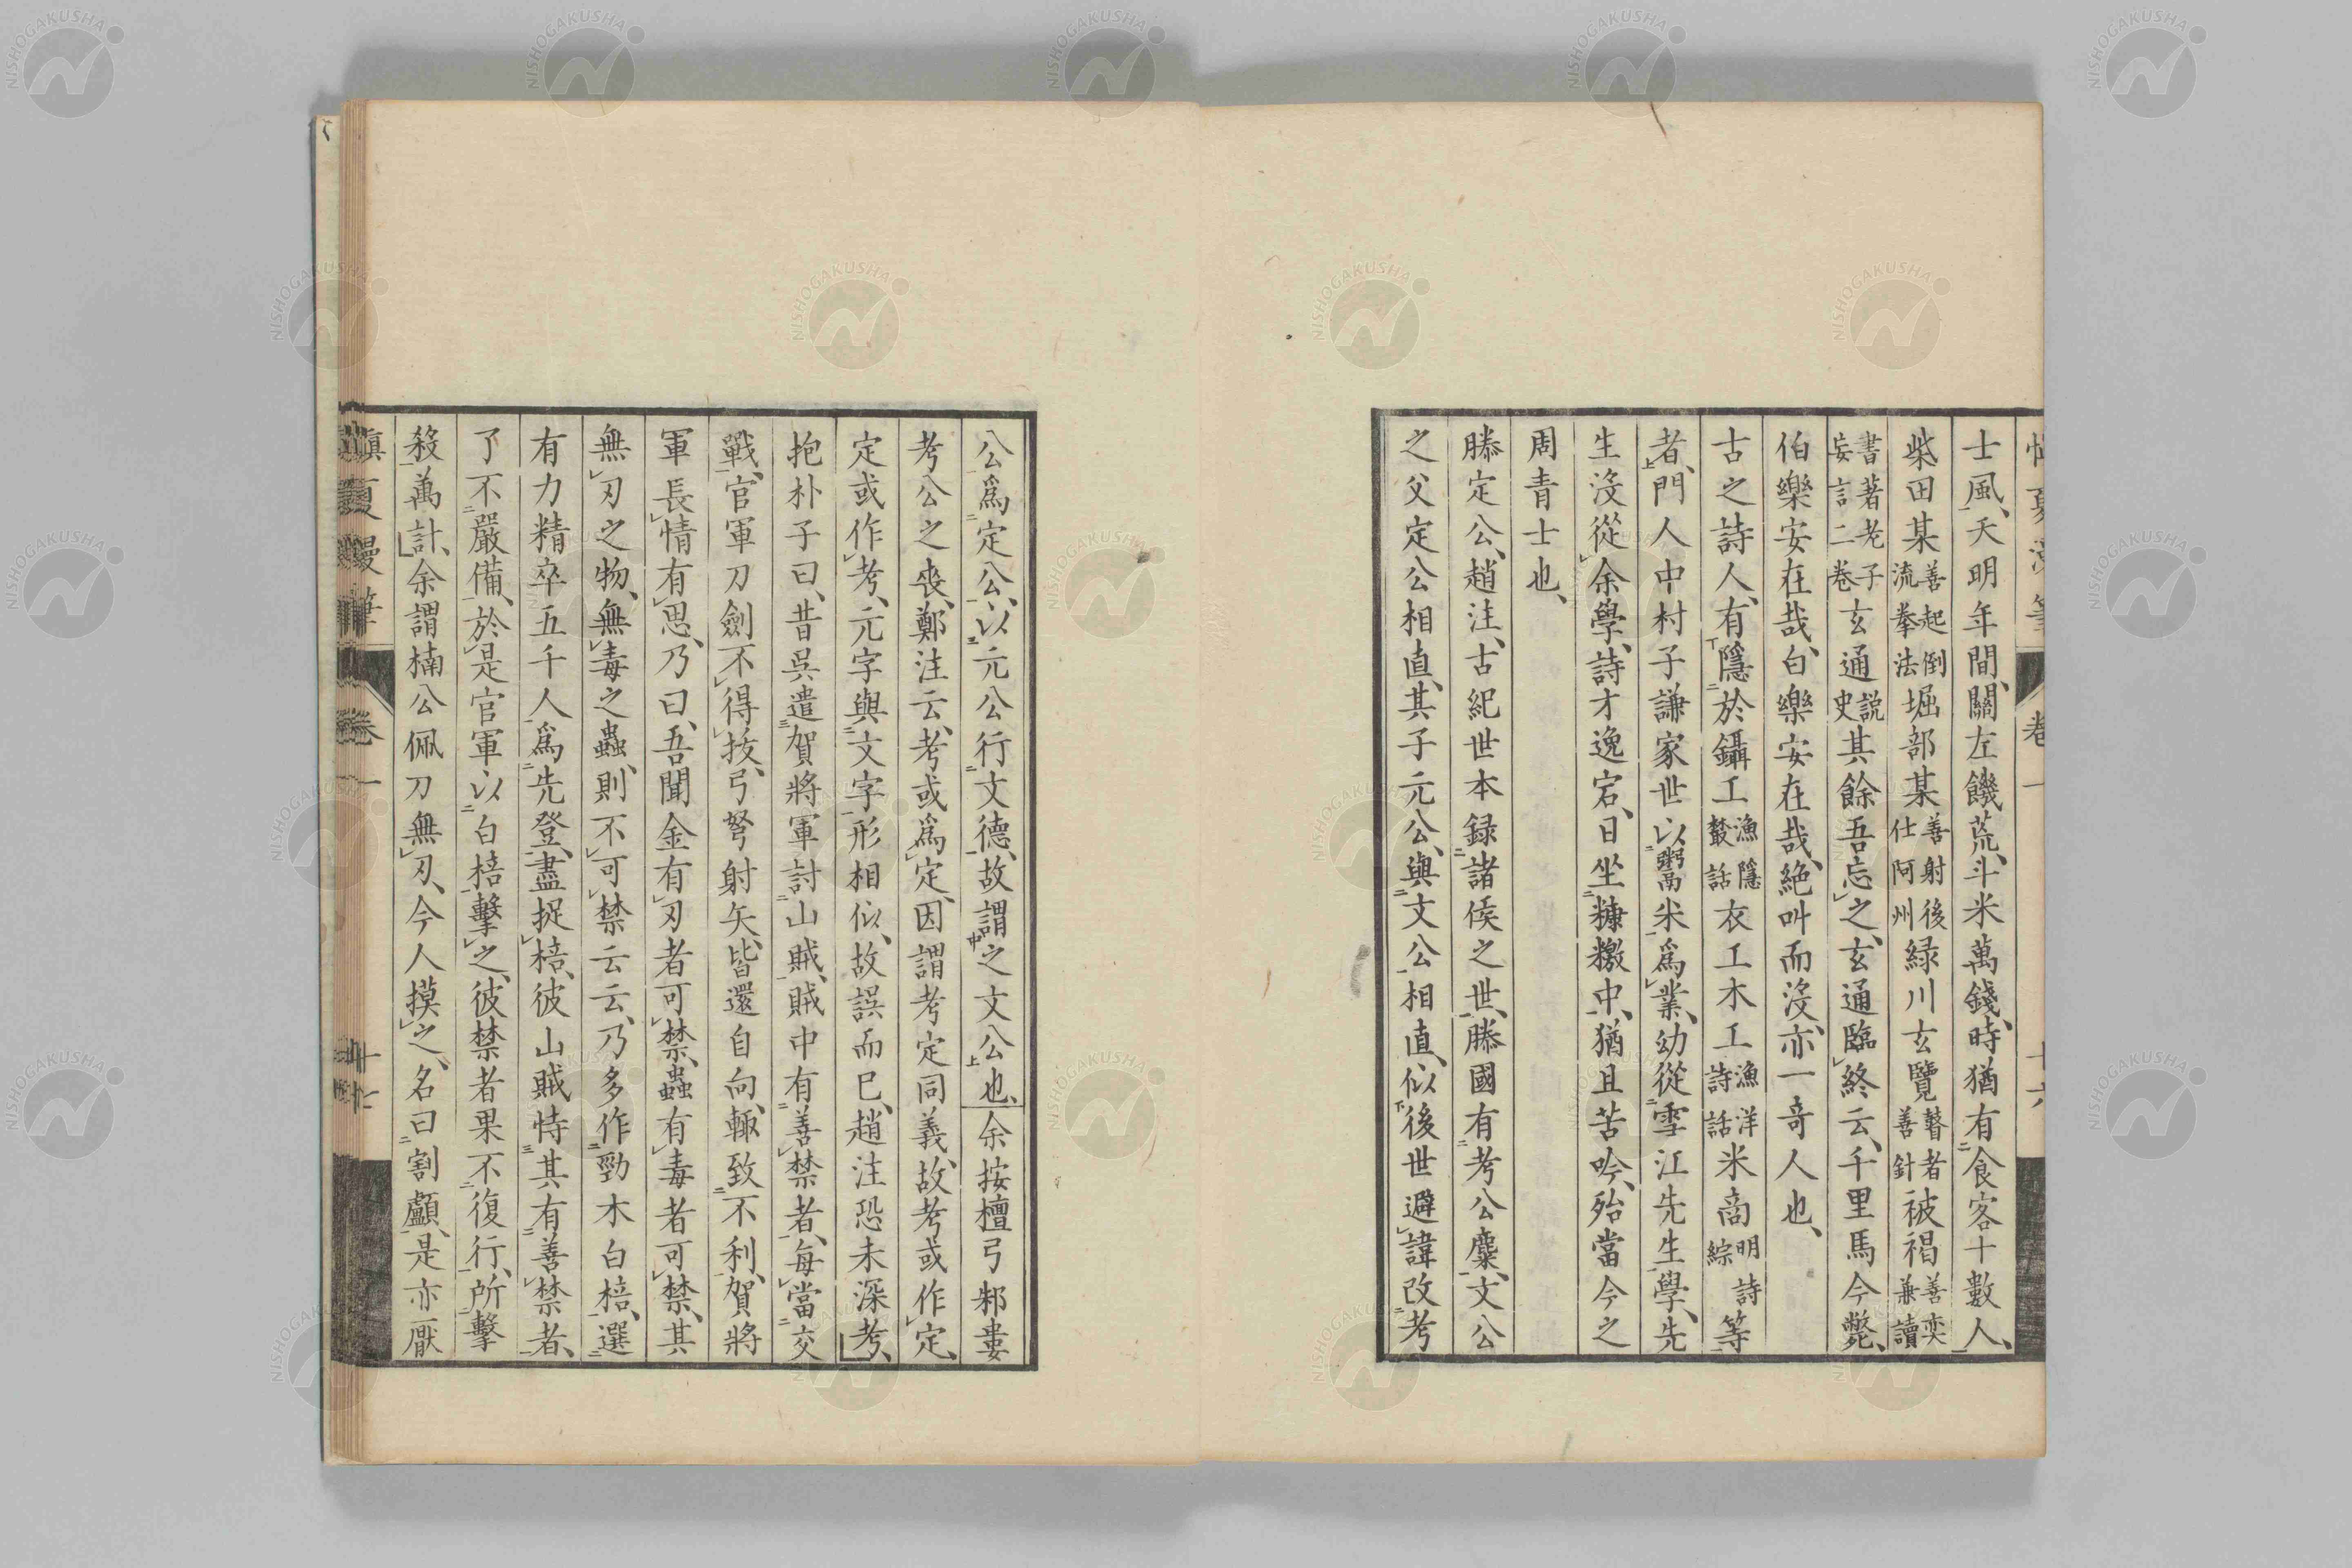 士風、天明年間、關左饑荒、斗米萬錢、時猶有食客十數人、
柴田某善起倒流拳法堀部某善射後仕阿州緑川玄覽瞽者善針被褐善奕兼讀
書著老子妄言二卷玄通説史其餘吾忘之、玄通臨終云、千里馬今斃、
伯樂安在哉、白樂安在哉、絶叫而沒、亦一奇人也、
古之詩人、有隱於鑷工漁隱叢話衣工木工漁洋詩話米商明詩綜等
者、門人中村子謙家世以鬻米爲業、幼從雪江先生學、先
生沒從余學、詩才逸宕、日坐糠籺中、猶且苦吟、殆當今之
周青士也、
滕定公、趙注、古紀世本録諸侯之世、滕國有考公麋、文公
之父定公相直、其子元公、與文公相直、似後世避諱改考
公爲定公、以元公行文德、故謂之文公也、余按檀弓邾婁
考公之喪、鄭注云、考或爲定、因謂考定同義、故考或作定、
定或作考、元字與文字形相似、故誤而已、趙注恐未深考、
抱朴子曰、昔吳遣賀將軍討山賊、賊中有善禁者、每當交
戰、官軍刀劍不得拔、弓弩射矢、皆還自向、輙致不利、賀將
軍長情有思、乃曰、吾聞金有刃者可禁、蟲有毒者可禁、其
無刃之物、無毒之蟲、則不可禁云云、乃多作勁木白棓、選
有力精卒五千人爲先登、盡捉棓、彼山賊恃其有善禁者、
了不嚴備、於是官軍以白棓擊之、彼禁者果不復行、所擊
殺萬計、余謂楠公佩刀無刃、今人摸之、名曰割顱、是亦厭
愼夏漫筆 卷一